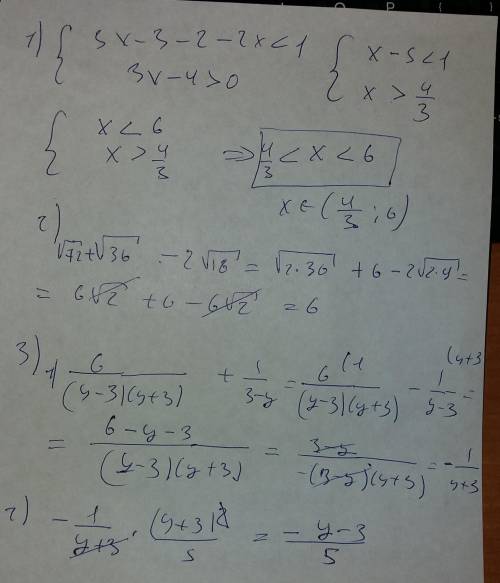 1) { 3x-3-2-2x<1   { x-5<1
3x-4>0   x > 4/3
{ x < 6
x > 4/3   => 4/3 < x < 6
x ∈ (4/3 ; 6)
2)
√72+√36 - 2√18 = √2·36 + 6 - 2√2·9 =
= 6√2 + 6 - 6√2 = 6
3) 1) 6/((y-3)(y+3)) + 1/(3-y) = 6(1/((y-3)(y+3)) - 1(y+3/(y-3) =
= (6-y-3)/((y-3)(y+3)) = (3-y)/(-(3-y)(y+3)) = -1/(y+3)
2) -1/(y+3) · (y+3)²/5 = (-y-3)/5